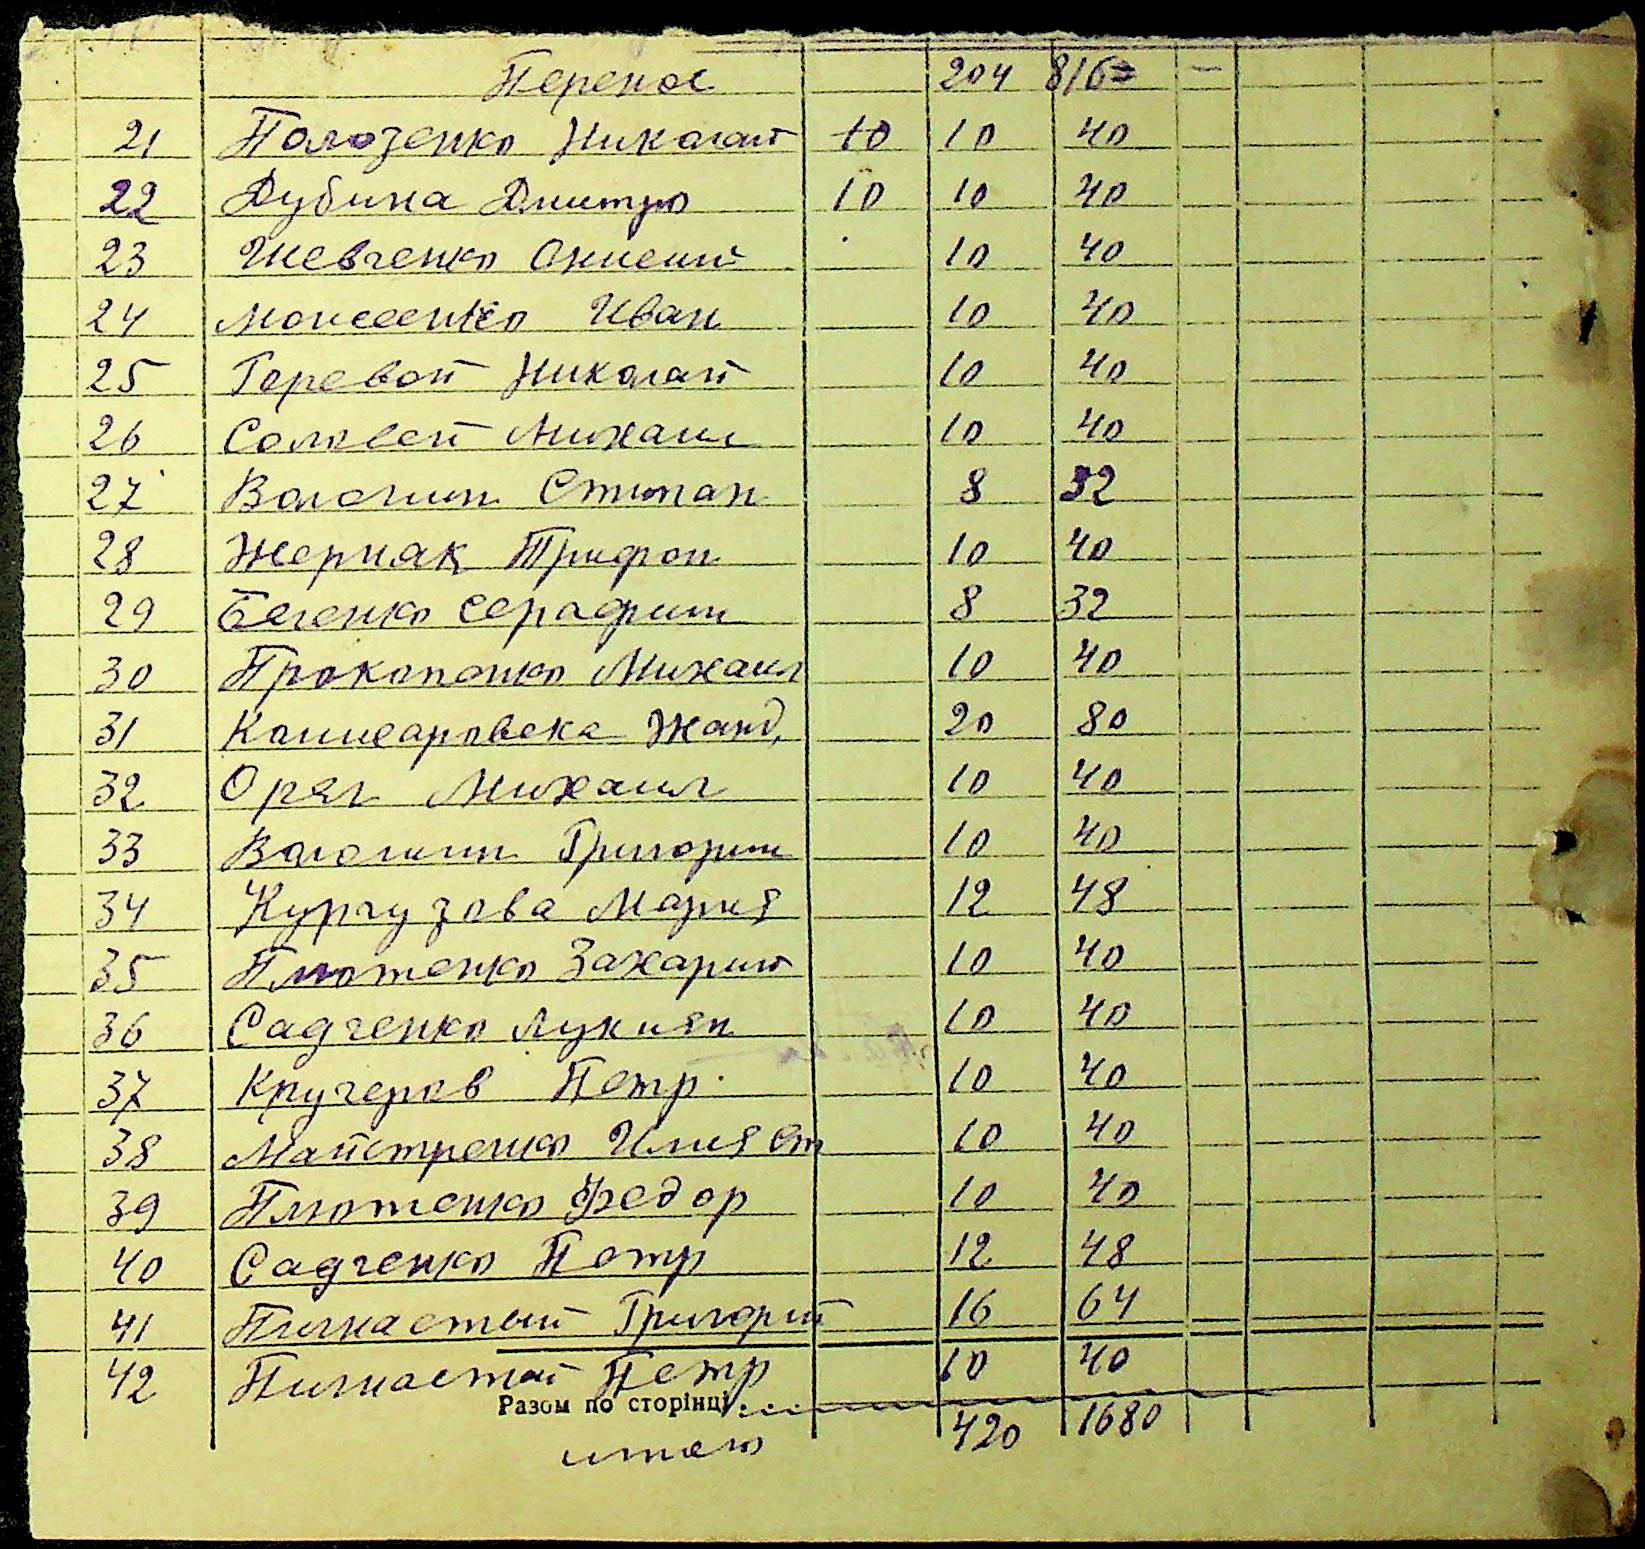 Перенос 204 816= –
21 Полозенко Николай 10 10 40
22 Дубина Дмитро 10 10 40
23 Шевченко Онисий 10 40
24 Моисеенко Иван 10 40
25 Горевой Николай 10 40
26 Соловей Михаил 10 40
27 Волошин Стипан 8 32
28 Жерняк Трифон 10 40
29 Беленко Серафим 8 32
30 Прокопенко Михаил 10 40
31 Комисаровска Жанд. 20 80
32 Орял Михаил 10 40
33 Волошин Григорий 10 40
34 Кургузова Мария 12 48
35 Плютенко Захарий 10 40
36 Садченко Лукиян 10 40
37 Кручеров Петр. 10 40
38 Майстренко Илия Ст 10 40
39 Плютенко Федор 10 40
40 Садченко Петр 12 48
41 Пигнастый Григорий 16 64
42 Пигнастой Петр 10 40
Разом по сторінці
итого 420 1680